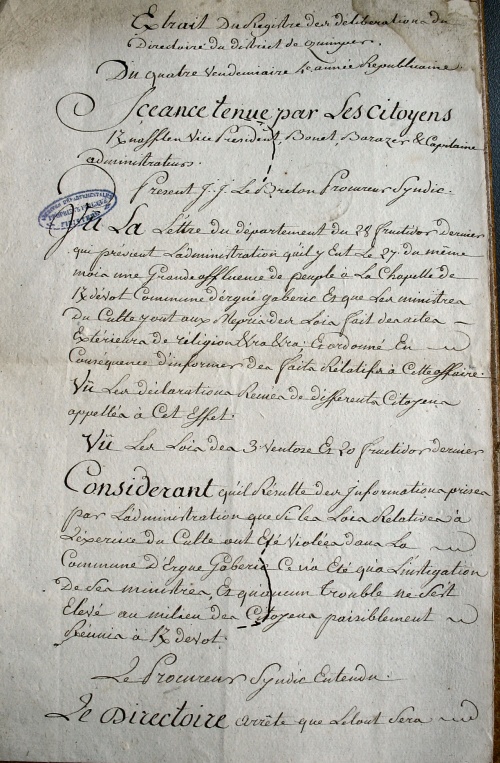 Extrait Du Registre des deliberations du
Directoire du district de quimper.
Du quatre Vendemiaire 4e année Republicaine.
Sceance tenue par Les Citoyens
Vice President, Bonet, Barazer & Capitaine
administrateurs.
Present J. J. Le Breton Procureur Syndic.
Vu La Lettre du département du 28 fructidor dernier
qui prévient Ladministration quil y eut Le 27 du même
mois une Grande affluence de peuple à La Chapelle de
Kdévot Commune dergué gaberic Et que Les ministres
Du Culte y ont aux mepris des Lois fait des actes
Exterieurs de religion &ra &ra. Et ordonné En
Conséquence d'informer des faits Rélatifs à Cette affaire.
Vû Les déclarations Remes de differents Citoyens
appellés à Cet Effet.
Vû Les Lois des 3 Ventose Et 20 fructidor dernier
Considerant quil Résulte des Informations prises
par Ladministration que Si les Lois Relatives à
Lexercise du Culte ont Eté violées dans La
Commune D'Ergue Gaberic Ce na Eté qua Linstigation
De Ses ministres, Et quaucun trouble ne Sest
Elevé au milieu des Citoyens paisiblement
Réunis à Kdevot.
Le Procureur Syndic Entendu.
Le Directoire arrête que Letout Sera
ARCHIVES DEPARTEMENTALES
FINISTERE